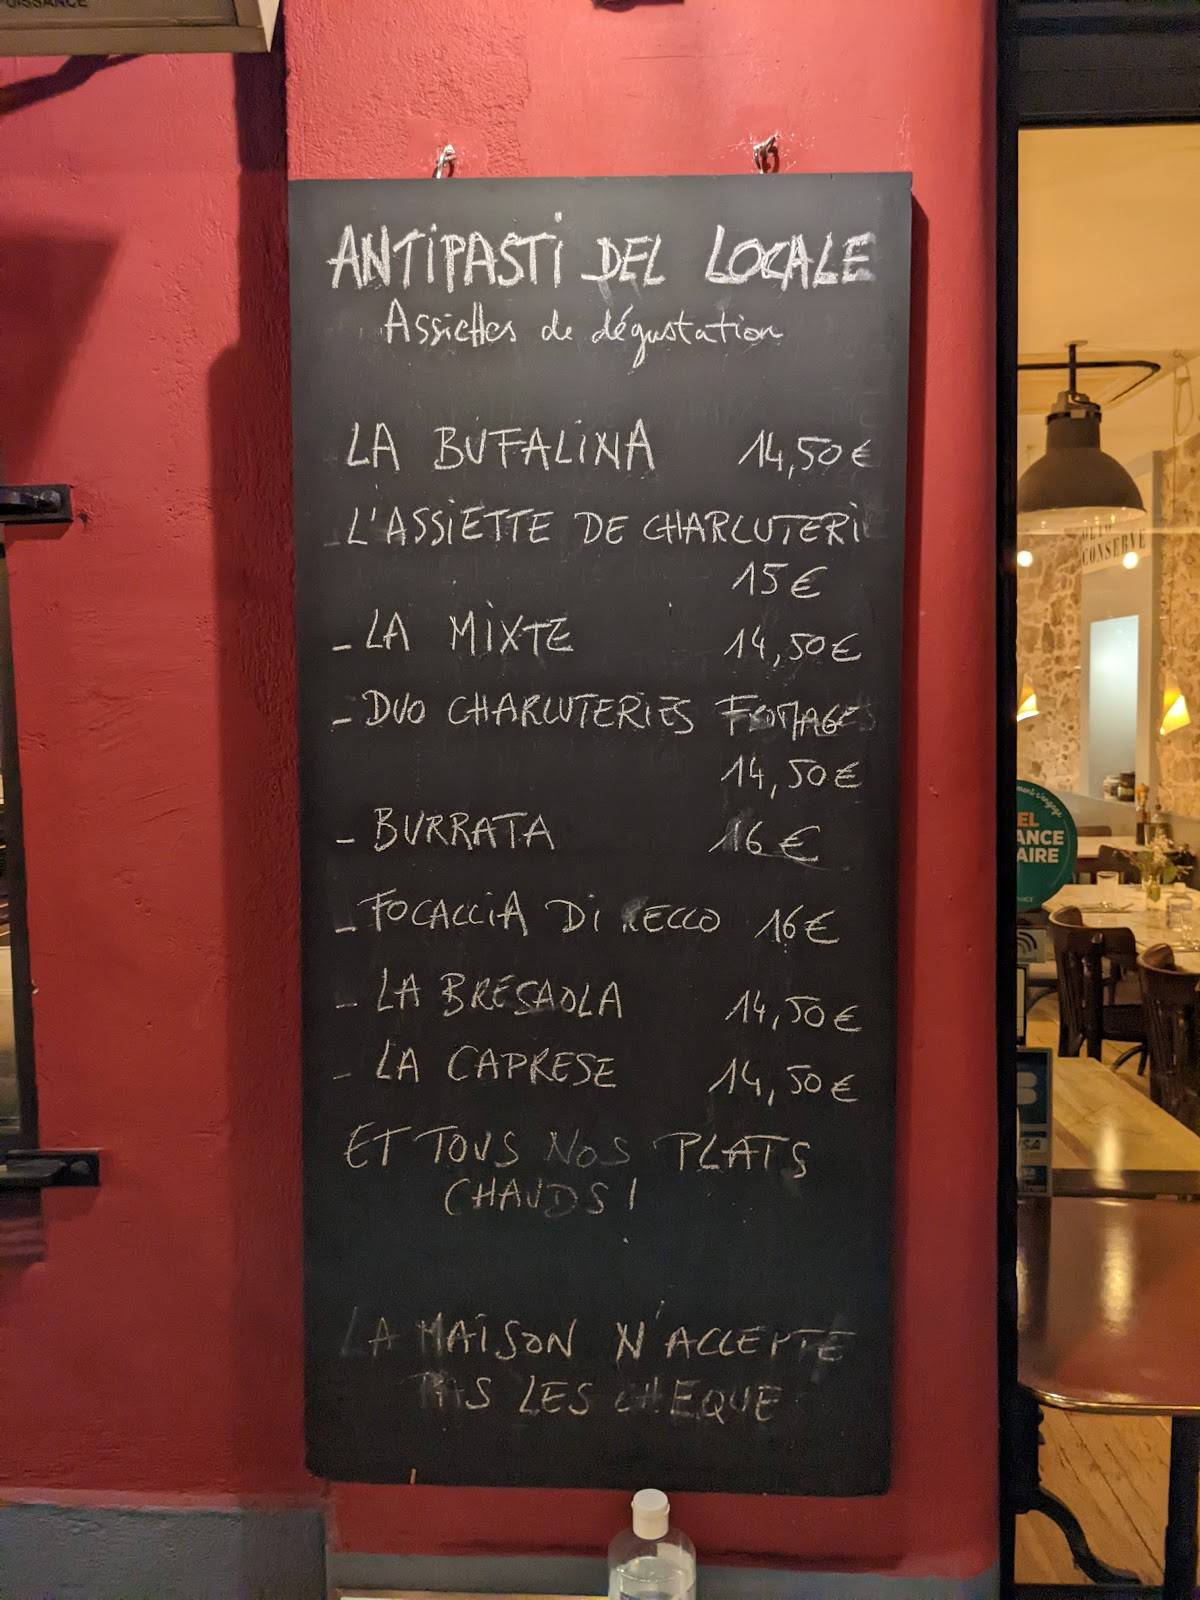 PUISSANCE
ANTIPASTI DEL LOCALE
Assiettes de dégustation
LA BUFALINA 14,50€
L'ASSIETTE DE CHARCUTERI
15€
- LA MIXTE 14,50€
- DUO CHARCUTERIES FROMAGES
14,50€
- BURRATA 16€
- FOCACCIA DI RECCO 16€
- LA BRESAOLA 14,50€
- LA CAPRESE 14,50€
ET TOUS NOS PLATS
CHAUDS!
LA MAISON N'ACCEPTE
PAS LES CHEQUE
CONSERVE
EL
ANCE
AIRE